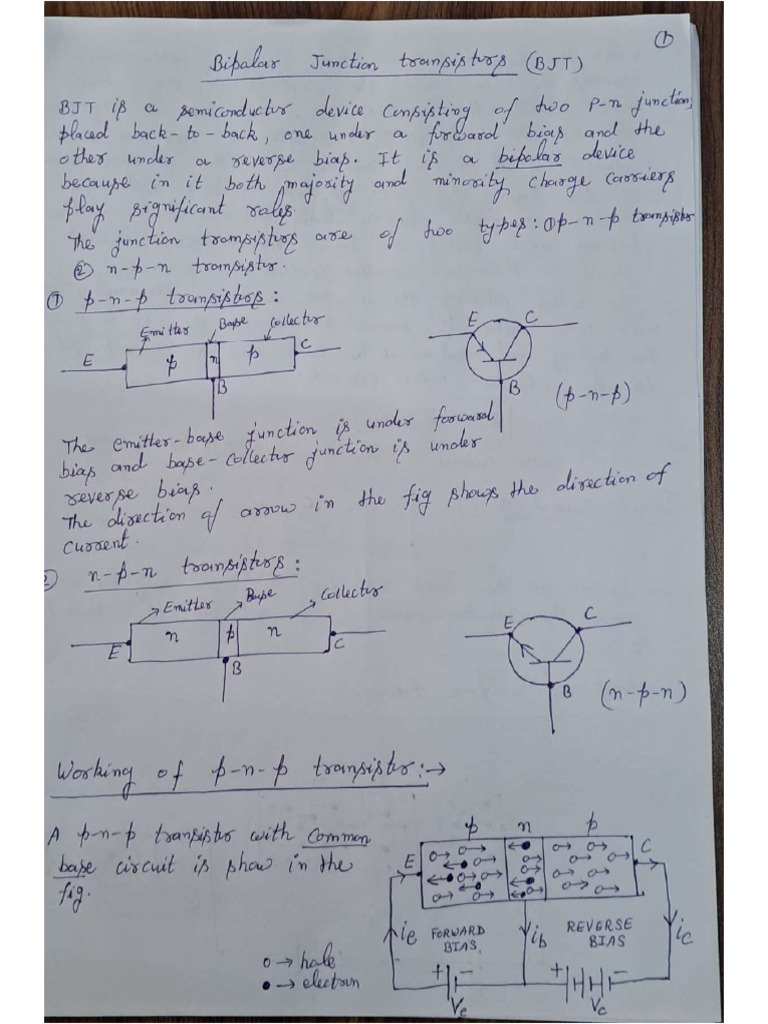 ①
Bipolar Junction transistors (BJT)
BJT is a semiconductor device consisting of two P-n junction,
placed back-to-back, one under a forward bias and the
other under a reverse bias. It is a bipolar device
because in it both majority and minority charge carriers
play significant roles.
The junction transistors are of two types: ① p-n-p transistor
② n-p-n transistor.
① p-n-p transistors:
Emitter Base Collector
E p n p C
B
E C
B
(p-n-p)
The emitter-base junction is under forward
bias and base-collector junction is under
reverse bias.
The direction of arrow in the fig shows the direction of
current.
② n-p-n transistors:
Emitter Base Collector
E n p n C
B
E C
B
(n-p-n)
Working of p-n-p transistor:→
A p-n-p transistor with common
base circuit is show in the
fig.
o → hole
● → electron
p n p
E C
ie FORWARD BIAS ib REVERSE BIAS ic
+ - + -
Ve Vc